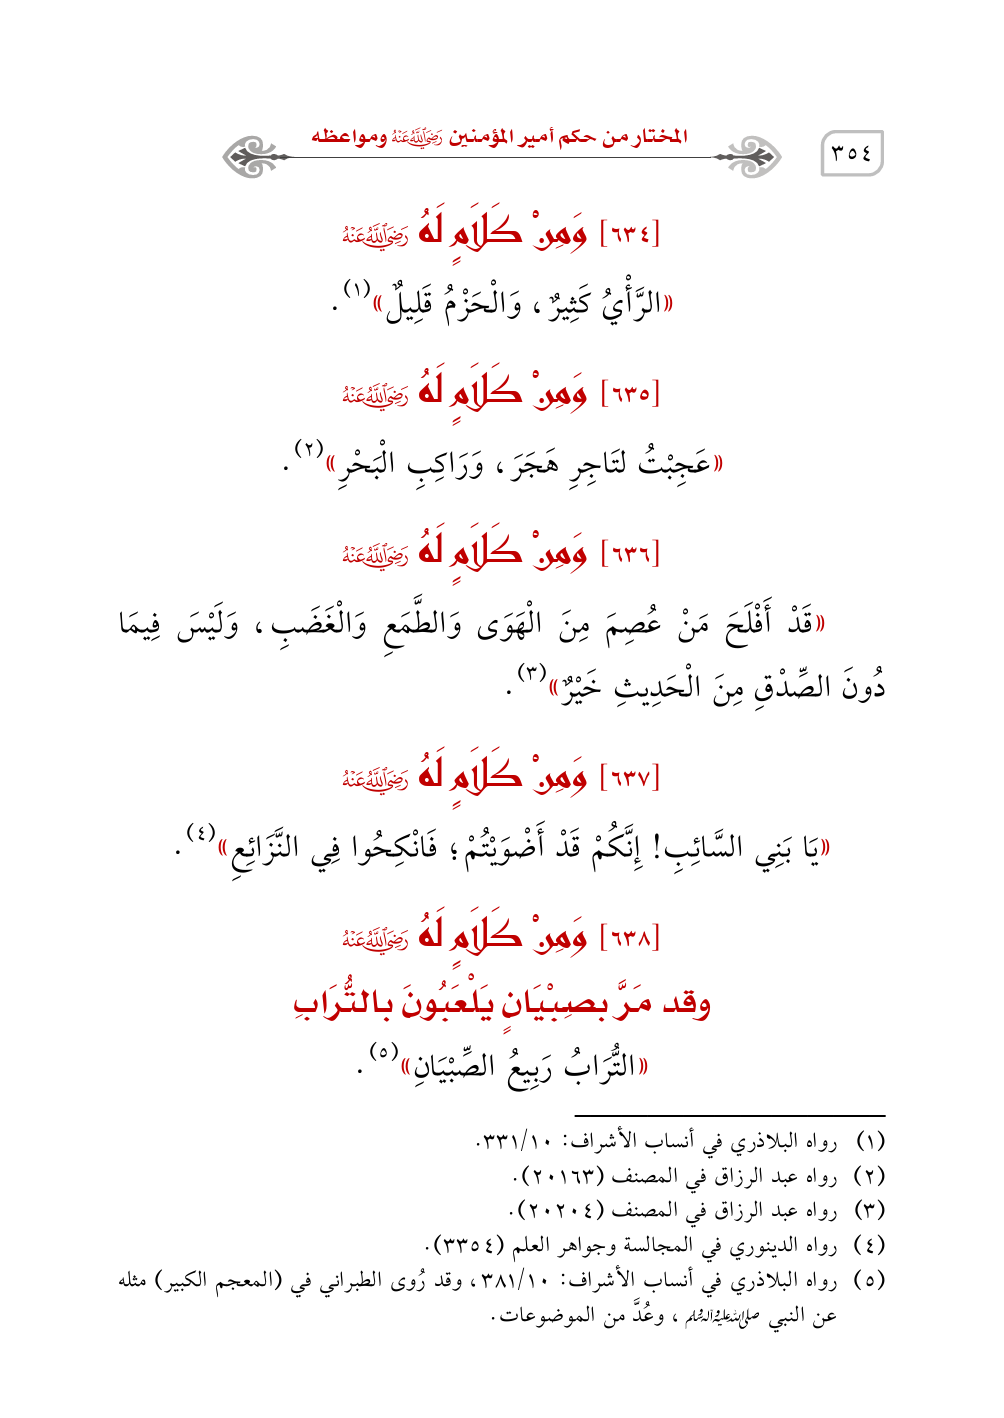 ٣٥٤
المختار من حكم أمير المؤمنين رَضِيَ اللَّهُ عَنْهُ ومواعظه
[٦٣٤] وَمِنْ كَلَامٍ لَهُ رَضِيَ اللَّهُ عَنْهُ
«الرَّأْيُ كَثِيرٌ، وَالْحَزْمُ قَلِيلٌ»(١).
[٦٣٥] وَمِنْ كَلَامٍ لَهُ رَضِيَ اللَّهُ عَنْهُ
«عَجِبْتُ لتَاجِرِ هَجَرَ، وَرَاكِبِ الْبَحْرِ»(٢).
[٦٣٦] وَمِنْ كَلَامٍ لَهُ رَضِيَ اللَّهُ عَنْهُ
«قَدْ أَفْلَحَ مَنْ عُصِمَ مِنَ الْهَوَى وَالطَّمَعِ وَالْغَضَبِ، وَلَيْسَ فِيمَا
دُونَ الصِّدْقِ مِنَ الْحَدِيثِ خَيْرٌ»(٣).
[٦٣٧] وَمِنْ كَلَامٍ لَهُ رَضِيَ اللَّهُ عَنْهُ
«يَا بَنِي السَّائِبِ! إِنَّكُمْ قَدْ أَضْوَيْتُمْ؛ فَانْكِحُوا فِي النَّزَائِعِ»(٤).
[٦٣٨] وَمِنْ كَلَامٍ لَهُ رَضِيَ اللَّهُ عَنْهُ
وقد مَرَّ بصِبْيَانٍ يَلْعَبُونَ بالتُّرَابِ
«التُّرَابُ رَبِيعُ الصِّبْيَانِ»(٥).
(١) رواه البلاذري في أنساب الأشراف: ٣٣١/١٠.
(٢) رواه عبد الرزاق في المصنف (٢٠١٦٣).
(٣) رواه عبد الرزاق في المصنف (٢٠٢٠٤).
(٤) رواه الدينوري في المجالسة وجواهر العلم (٣٣٥٤).
(٥) رواه البلاذري في أنساب الأشراف: ٣٨١/١٠، وقد رُوى الطبراني في (المعجم الكبير) مثله
عن النبي صلى الله عليه وآله وسلم، وعُدَّ من الموضوعات.